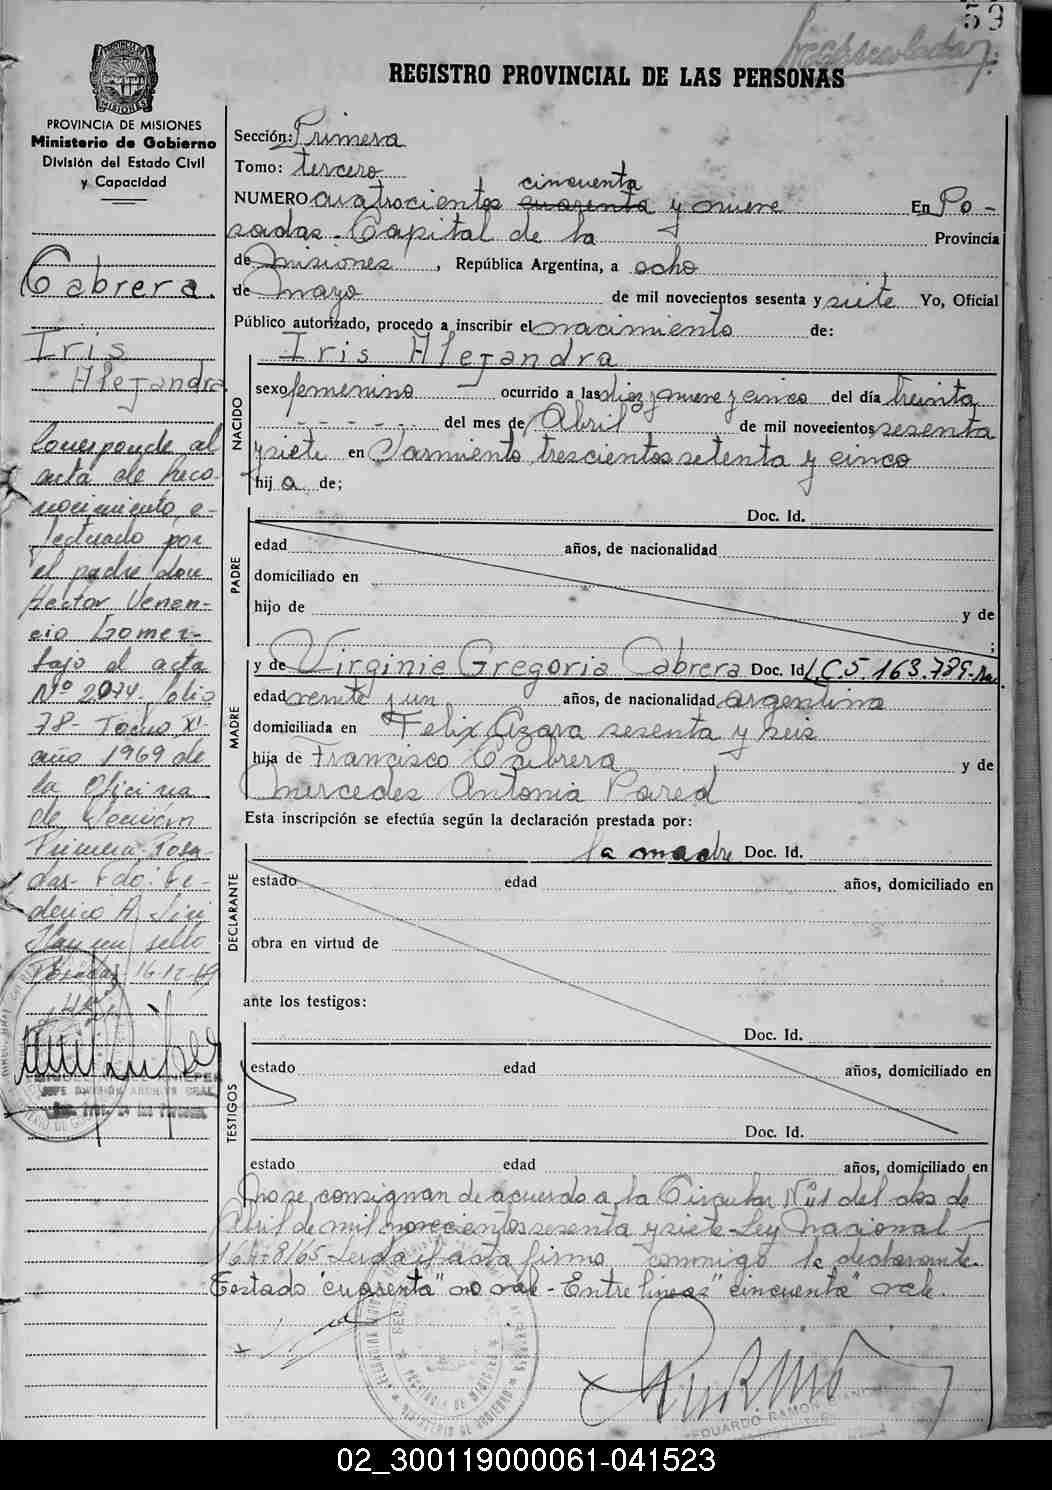 59
REGISTRO PROVINCIAL DE LAS PERSONAS
PROVINCIA DE MISIONES
MISIONES
PROVINCIA DE MISIONES
Ministerio de Gobierno
División del Estado Civil
y Capacidad
Cabrera.
Iris
Alejandra
Corresponde al
acta de reco-
nocimiento e-
fectuado por
el padre don
Hector Venan-
cio Gomez-
bajo el acta
Nº 2074- folio
78- Tomo XI-
año 1969 de
la Oficina
de Sección
Primera- Posa-
das- Fdo: Fe-
derico A.
Hay un sello
Posadas 16-12-69
JEFE DIVISION ARCHIVO GRAL
Reg. Prov. de las Personas
Sección: Primera
Tomo: tercero
cincuenta
NUMERO cuatrocientos cuarenta y nueve En Po-
sadas. Capital de la Provincia
de Misiones, República Argentina, a ocho
de Mayo de mil novecientos sesenta y siete Yo, Oficial
Público autorizado, procedo a inscribir el nacimiento de:
Iris Alejandra
NACIDO
sexo femenino ocurrido a las diez y nueve y cinco del día treinta
- - - - - - del mes de Abril de mil novecientos sesenta
y siete en Sarmiento trescientos setenta y cinco
hij a de;
PADRE
Doc. Id.
edad años, de nacionalidad
domiciliado en
hijo de y de
;
MADRE
y de Virginia Gregoria Cabrera Doc. Id. L.C. 5.163.789-
edad veinte y un años, de nacionalidad argentina
domiciliada en Felix Azara sesenta y seis
hija de Francisco Cabrera y de
Mercedes Antonia Pared
Esta inscripción se efectúa según la declaración prestada por:
DECLARANTE
la madre Doc. Id.
estado edad años, domiciliado en
obra en virtud de
ante los testigos:
TESTIGOS
Doc. Id.
estado edad años, domiciliado en
Doc. Id.
estado edad años, domiciliado en
No se consignan de acuerdo a la Circular Nº 1 del dos de
Abril de mil novecientos sesenta y siete- Ley Nacional
16478/65- Leida el acta firma conmigo la declarante.
Testado "cuarenta" no vale - Entre lineas "cincuenta" vale.
EDUARDO RAMON
02_300119000061-041523